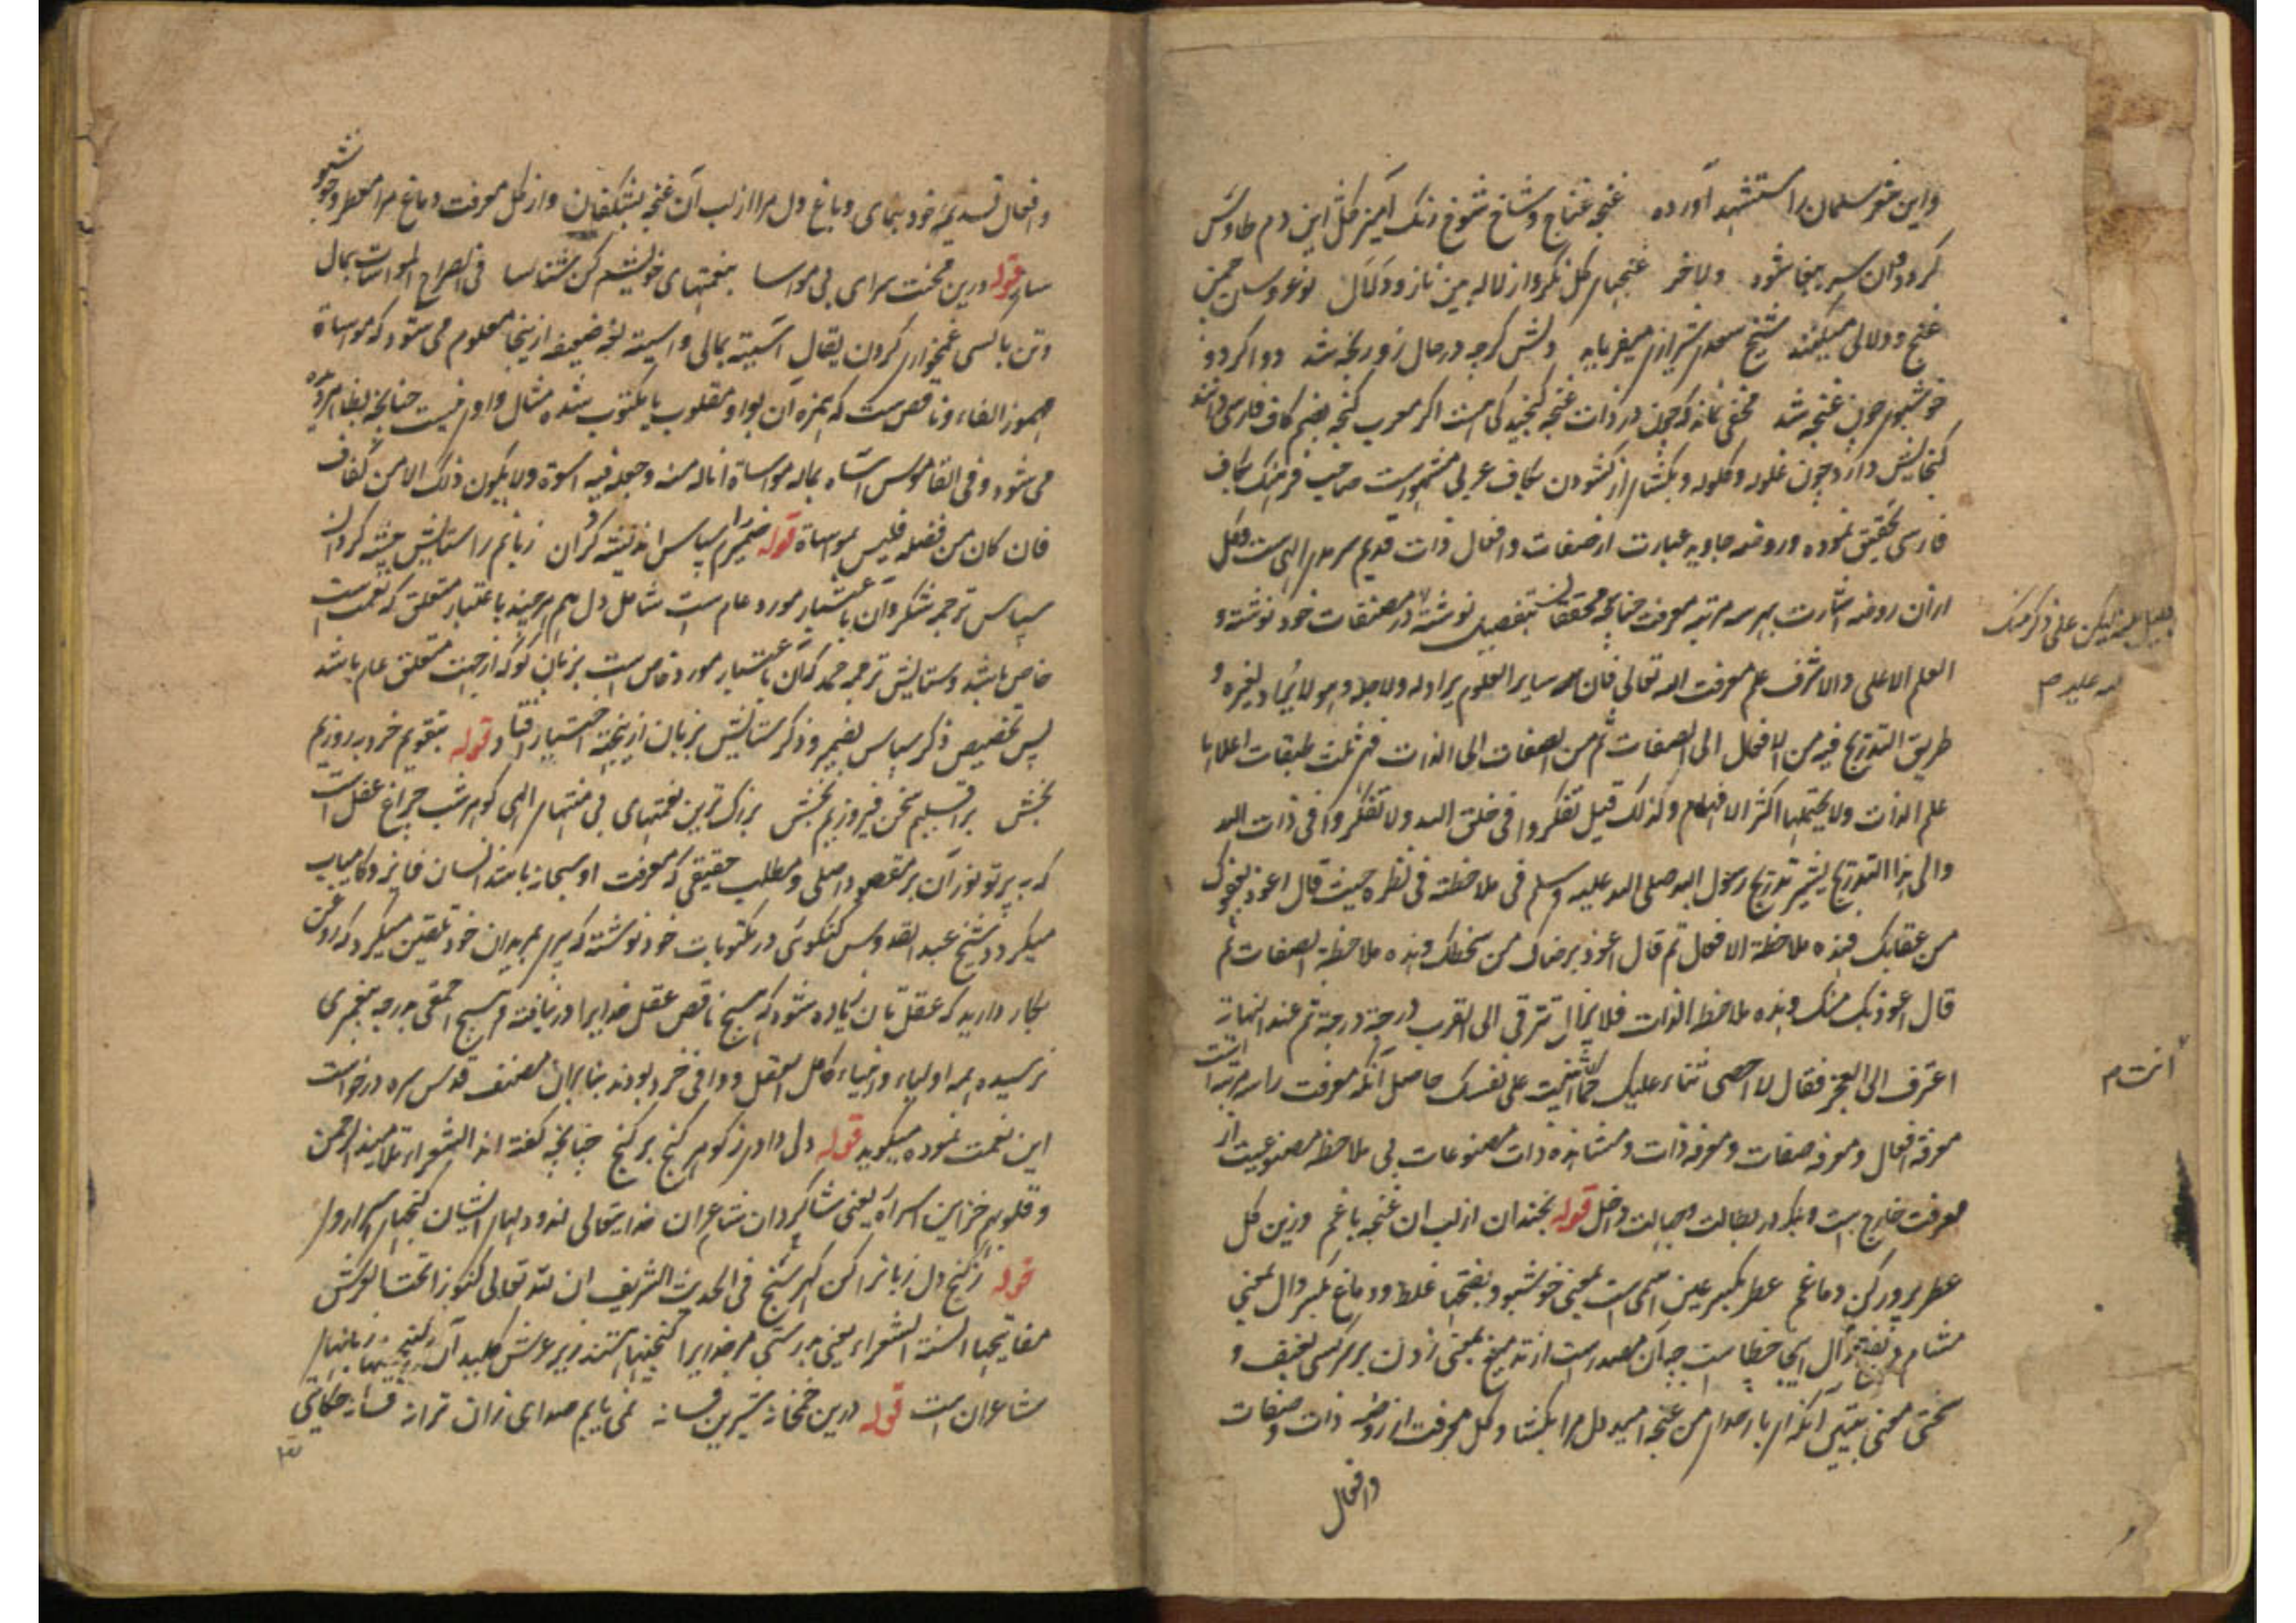 واین شعر سلمان را استشهاد آورده غنچه غناج و شاخ شوخ رنگ آمیز گل این دم طاوس
کردد وان سر ببغا شود غنچهای گل نکر و از لاله بین ناز و دلال نوعروسان چمن
غنج و دلالی میکنند شیخ سعدی شیرازی میفرماید دلش کرچه در حال زو رنجه شد دوا کرد و
خوشبوی چون غنچه شد مخفی نماند که چون در ذات غنچه گنجیدگی است اگر معرب گنجه بضم کاف فارسی
گنجایش دارد چون غلوله و گلوله و بگشای از گشودن بکاف عربی مشهورست صاحب فرهنگ بکاف
فارسی تحقیق نموده و روضه جاوید عبارت از صفات و افعال ذات قدیم سرمدی الهی ست و گل
ازان روضه اشارت بهر سه مرتبه معرفت چنانچه محققان بتفصیل نوشته در مصنفات خود نوشته و
العلم الاعلی والاشرف علم معرفت الله تعالی فان سایر العلوم یراد له ولاجله وهو لا یراد لغیره و
طریق التدریج فیه من الافعال الی الصفات ثم من الصفات الی الذات فهی ثلث طبقات اعلاها
علم الذات ولا یحتملها اکثر الافهام وکذلک قیل تفکروا فی خلق الله ولا تفکروا فی ذات الله
والی هذا التدریج یشیر تدریج رسول الله صلی الله علیه وسلم فی ملاحظته فی نظره حیث قال اعوذ بعفوک
من عقابک فهذه ملاحظة الافعال ثم قال اعوذ برضاک من سخطک وهذه ملاحظة الصفات ثم
قال اعوذ بک منک وهذه ملاحظة الذات فلا یزال تترقی الی القرب درجة درجة ثم عند النهایة
اعترف الی العجز فقال لا احصی ثناء علیک کما اثنیت علی نفسک حاصل آنکه معرفت را سه مرتبه است
معرفة افعال و معرفه صفات و معرفه ذات و مشاهده ذات مصنوعات بی ملاحظه مصنوعیت از
معرفت خارج است و بلکه در بطالت و جهالت داخل قوله بخندان از لب ان غنچه باغم وزین گل
عطر پرور کن دماغم عطر بکسر عین اسمی است بمعنی خوشبو و بفتحها غلط و دماغ بکسر دال بمعنی
مشام و بفتح دال اینجا خطاست چه ان مصدرست بمعنی زدن بر سر کسی
سختی معنی بیتین آنکه ای بار خدای من غنچه امید دل مرا بگشا و گل معرفت از روضه ذات و صفات
وافعال
لله علیه م
انت م
و افعال قدیمه خود بنمای و باغ دل مرا از لب آن غنچه بشکفان و از گل معرفت دماغ مرا معطر و خوشبو
ساز قوله درین محنت سرای بی مواسا بنعمتهای خویشم کن شناسا فی الصراح المواسات بمال
و تن با کسی غمخواری کردن یقال آسیته بمالی و واسیته لغة ضعیفه ازینجا معلوم می شود که مواساة
مهموز الفاء و ناقص ست که همزه آن بواو مقلوب یا مکتوب شده مثال واوی نیست چنانچه بظاهر
می شود و فی القاموس آساه بماله مواساة اناله منه وجعله فیه اسوة ولا یکون ذلک الا من کفاف
فان کان من فضله فلیس بمواساة قوله ضمیرم را سپاس اندیشه گردان زبانم را ستایش پیشه گردان
سپاس ترجمه شکر و آن باعتبار مورد عام ست شامل دل هم هرچند باعتبار متعلق که نعمت است
خاص باشد و ستایش ترجمه حمد که آن باعتبار مورد خاص است بزبان گو که از جهت متعلق عام باشد
پس تخصیص ذکر سپاس بضمیر و ذکر ستایش بزبان ازینجهة اختیار افتاد قوله بتقویم خرد بهروزیم
بخش بر اقلیم سخن فیروزیم بخش بزرگ ترین نعمتهای بی منتهای الهی گوهر شب چراغ عقل است
که به پرتو نور آن بر مقصود اصلی و مطلب حقیقی که معرفت او سبحانه باشد انسان فایز و کامیاب
میگردد شیخ عبد القدوس گنگوئی در مکتوبات خود نوشته که پیرم بمریدان خود تلقین میکرد که روغن
بکار دارید که عقل تان زیاده شود که هیچ ناقص عقل خدایرا در نیافته و هیچ احمقی بدرجه پیغمبری
نرسیده همه اولیاء و انبیاء کامل العقل و وافی خرد بودند بنابران مصنف قدس سره درخواست
این نعمت نموده میگوید قوله دلی دادی ز گوهر گنج بر گنج چنانچه گفته اند الشعراء تلامیذ الرحمن
و قلوبهم خزاین اسراره یعنی شاگردان شاعران خدایتعالی اند و دلهای ایشان گنجهای اسرار او
قوله ز گنج دل زبانرا کن گهر سنج فی الحدیث الشریف ان لله تعالی کنوزا تحت العرش
مفاتیحها السنة الشعراء یعنی بدرستی مر خدایرا گنجینها هستند زیر عرش کلید آن گنجینها زبانهای
شاعران است قوله درین خمخانه شیرین فسانه نمی یابم صدای زان ترانه فسانه حکایتی